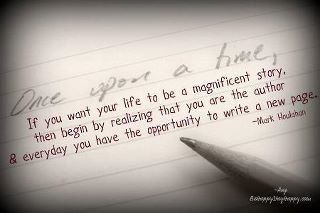 Once upon a time,
If you want your life to be a magnificent story,
then begin by realizing that you are the author
& everyday you have the opportunity to write a new page.
~Mark Houlahan